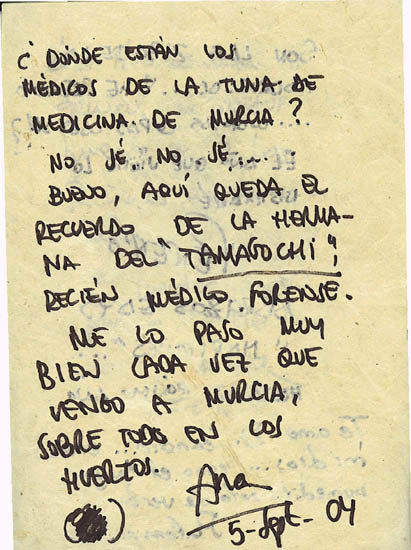 ¿DÓNDE ESTÁN LOS
MÉDICOS DE LA TUNA DE
MEDICINA DE MURCIA?
NO SÉ, NO SÉ....
BUENO, AQUÍ QUEDA EL
RECUERDO DE LA HERMA-
NA DEL "TAMAGOCHI",
RECIÉN MÉDICO FORENSE.
ME LO PASO MUY
BIEN CADA VEZ QUE
VENGO A MURCIA,
SOBRE TODO EN LOS
HUERTOS.
Ana
5-Sept-04